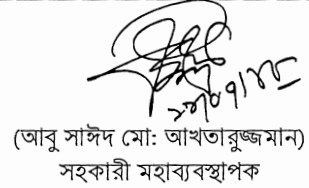 (আবু সাঈদ মো: আখতারুজ্জমান)
সহকারী মহাব্যবস্থাপক